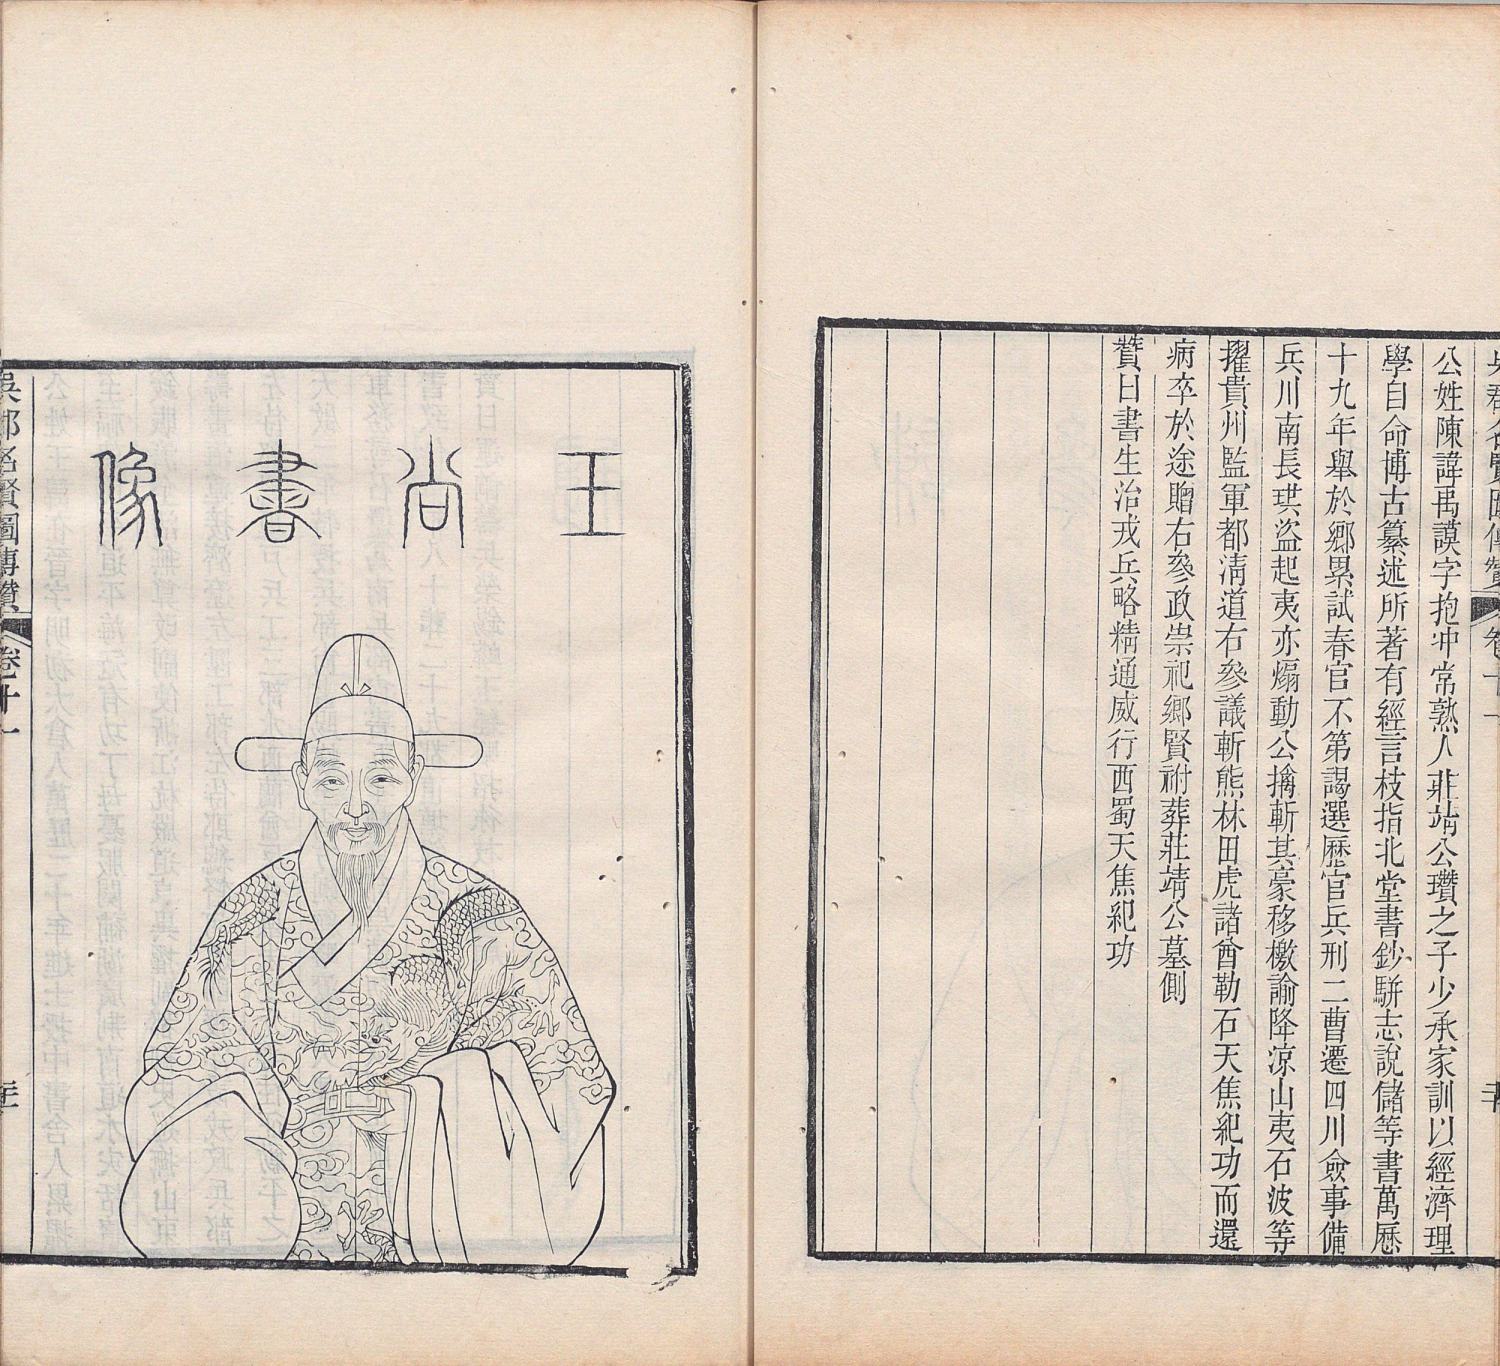 公姓陳諱禹謨字抱冲常熟人莊靖公瓚之子少承家訓以經濟理
學自命博古纂述所著有經言枝指北堂書鈔駢志說儲等書萬歷
十九年舉於鄉累試春官不第謁選歷官兵刑二曹遷四川僉事備
兵川南長珙盜起夷亦煽動公擒斬其豪移檄諭降凉山夷石波等
擢貴州監軍都淸道右參議斬熊林田虎諸酋勒石天焦紀功而還
病卒於途贈右參政崇祀鄉賢祔葬莊靖公墓側
贊曰書生治戎兵略精通威行西蜀天焦紀功
王尚書像
吳郡名賢圖傳贊 卷十一